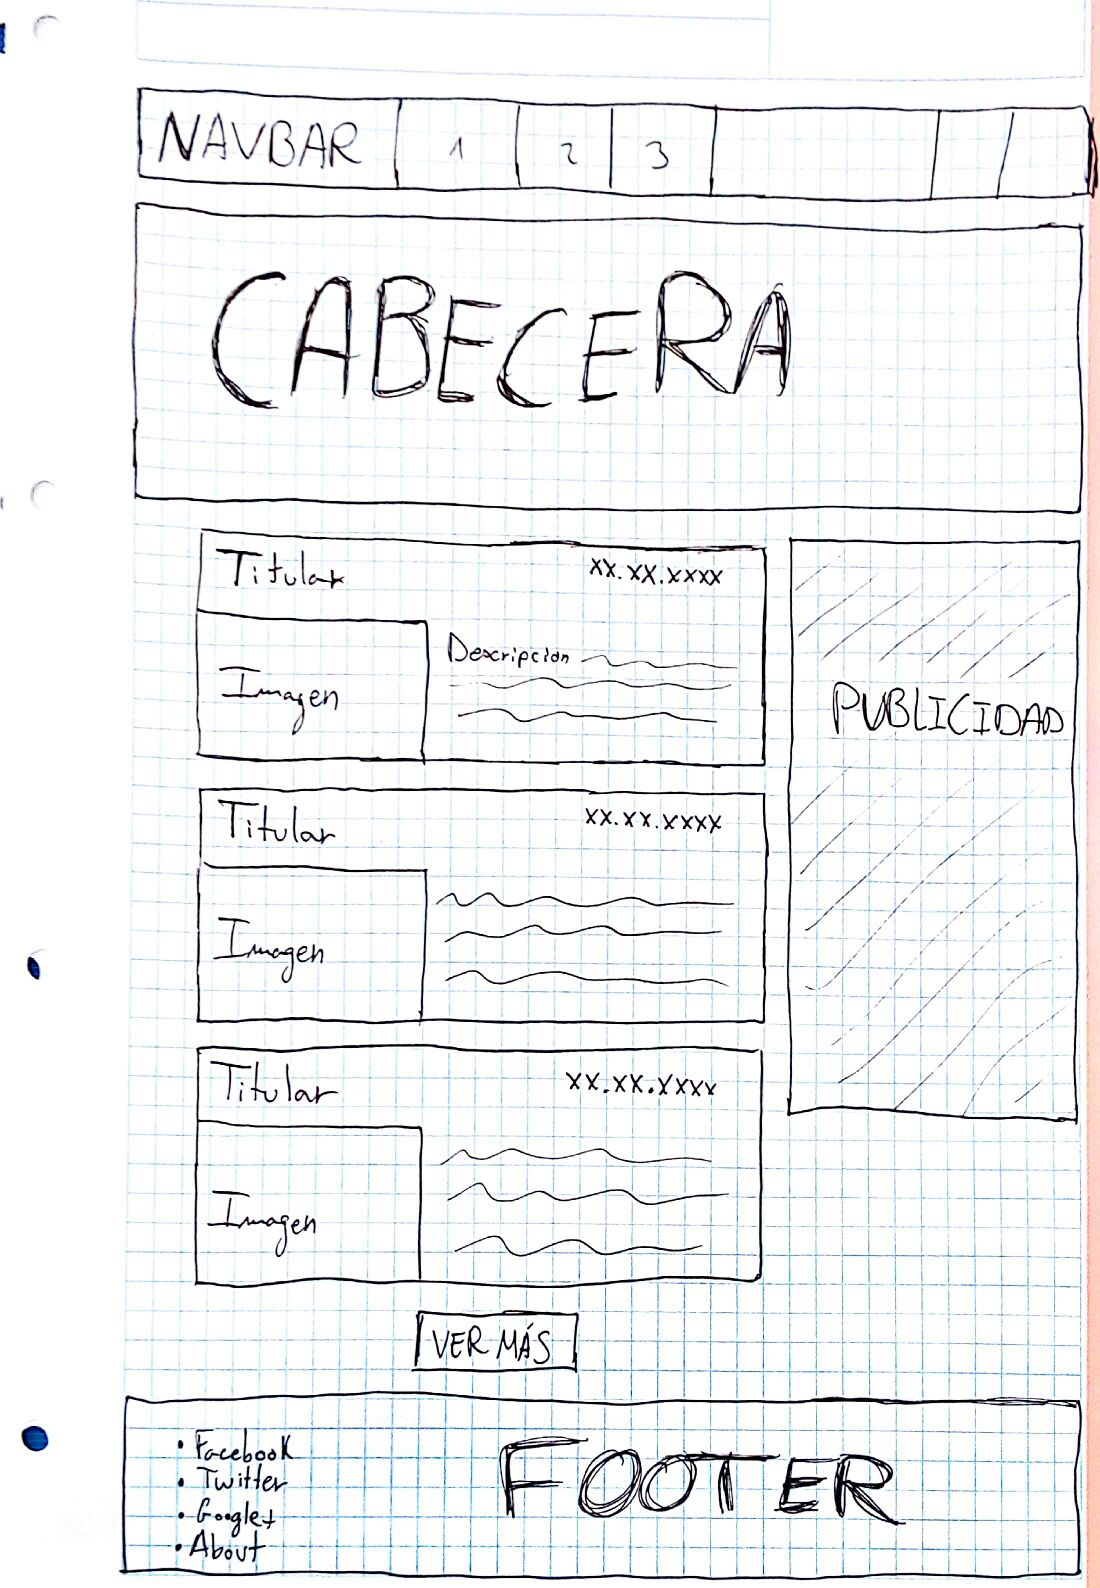 NAVBAR 1 2 3
CABECERA
Titular xx.xx.xxxx
Imagen
Descripcion
PUBLICIDAD
Titular xx.xx.xxxx
Imagen
Titular xx.xx.xxxx
Imagen
VER MÁS
FOOTER
• Facebook
• Twitter
• Google+
• About